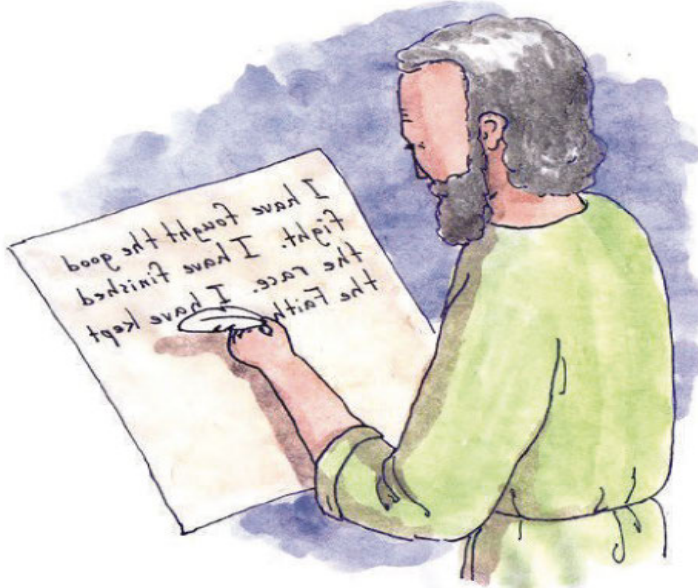 I have fought the good
fight. I have finished
the race. I have kept
the Faith